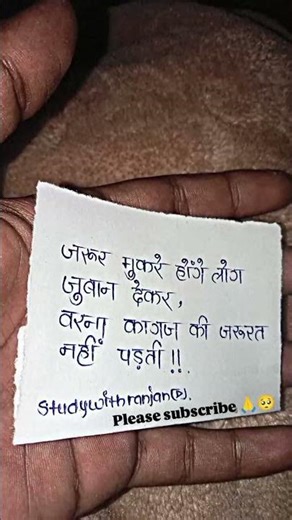 जरूर मुकरे होंगे लोग
जुबान देकर,
वरना कागज की जरूरत
नहीं पड़ती !!.
Studywithranjan(P).
Please subscribe 🙏🥺